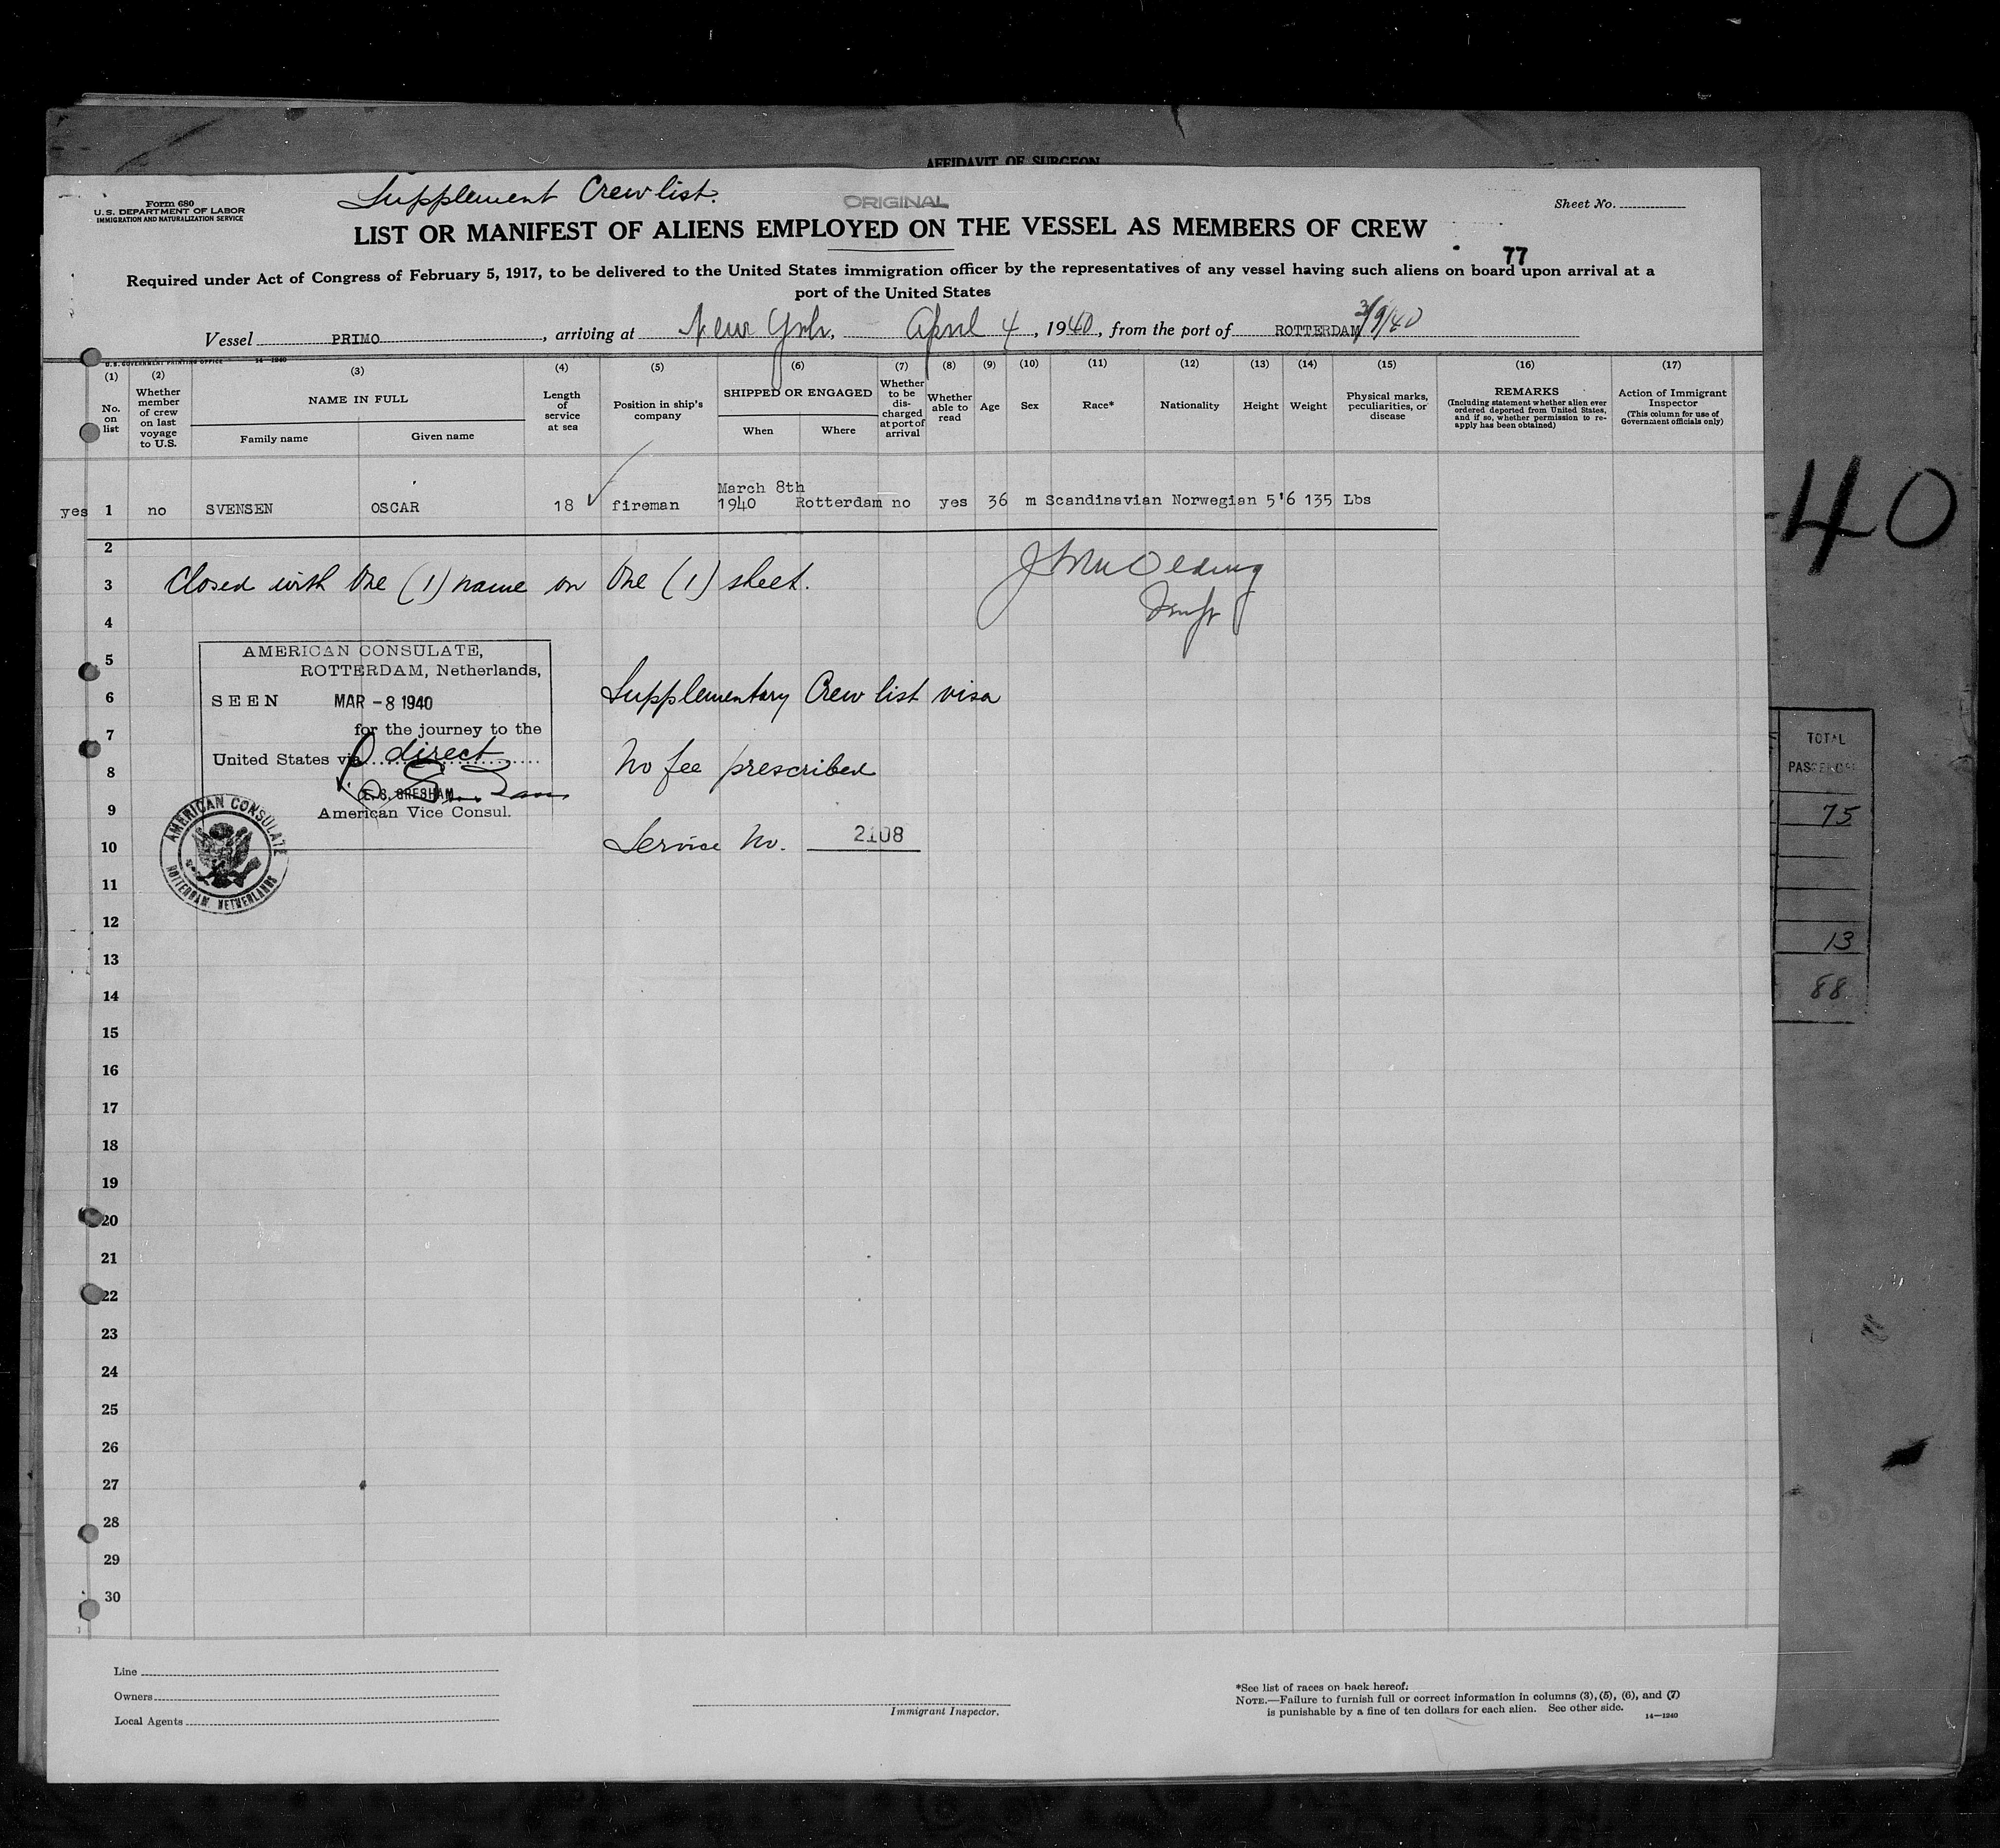 AFFIDAVIT OF SURGEON
Supplement Crew list.
ORIGINAL
Form 680
U. S. DEPARTMENT OF LABOR
IMMIGRATION AND NATURALIZATION SERVICE
Sheet No.
LIST OR MANIFEST OF ALIENS EMPLOYED ON THE VESSEL AS MEMBERS OF CREW
77
Required under Act of Congress of February 5, 1917, to be delivered to the United States immigration officer by the representatives of any vessel having such aliens on board upon arrival at a
port of the United States
Vessel PRIMO, arriving at New York, April 4, 1940, from the port of ROTTERDAM 3/9/40
U. S. GOVERNMENT PRINTING OFFICE 14—1240
(1) No. on list
(2) Whether member of crew on last voyage to U.S.
(3) NAME IN FULL
Family name
Given name
(4) Length of service at sea
(5) Position in ship's company
(6) SHIPPED OR ENGAGED
When
Where
(7) Whether to be dis-charged at port of arrival
(8) Whether able to read
(9) Age
(10) Sex
(11) Race*
(12) Nationality
(13) Height
(14) Weight
(15) Physical marks, peculiarities, or disease
(16) REMARKS
(Including statement whether alien ever ordered deported from United States, and if so, whether permission to re-apply has been obtained)
(17) Action of Immigrant Inspector
(This column for use of Government officials only)
yes 1 no SVENSEN OSCAR 18 ✓ fireman March 8th 1940 Rotterdam no yes 36 m Scandinavian Norwegian 5'6 135 Lbs
2
3 Closed with One (1) name on One (1) sheet.
4
5
6
7
8
9
10
11
12
13
14
15
16
17
18
19
20
21
22
23
24
25
26
27
28
29
30
AMERICAN CONSULATE,
ROTTERDAM, Netherlands,
SEEN MAR - 8 1940
for the journey to the
United States via direct
E. S. GRESHAM
American Vice Consul.
AMERICAN CONSULATE
ROTTERDAM, NETHERLANDS
Supplementary Crew list visa
No fee prescribed
Service No. 2108
40
TOTAL
PASSENGE
75
13
88
Line
Owners
Local Agents
Immigrant Inspector.
*See list of races on back hereof.
NOTE.—Failure to furnish full or correct information in columns (3), (5), (6), and (7)
is punishable by a fine of ten dollars for each alien. See other side.
14—1240